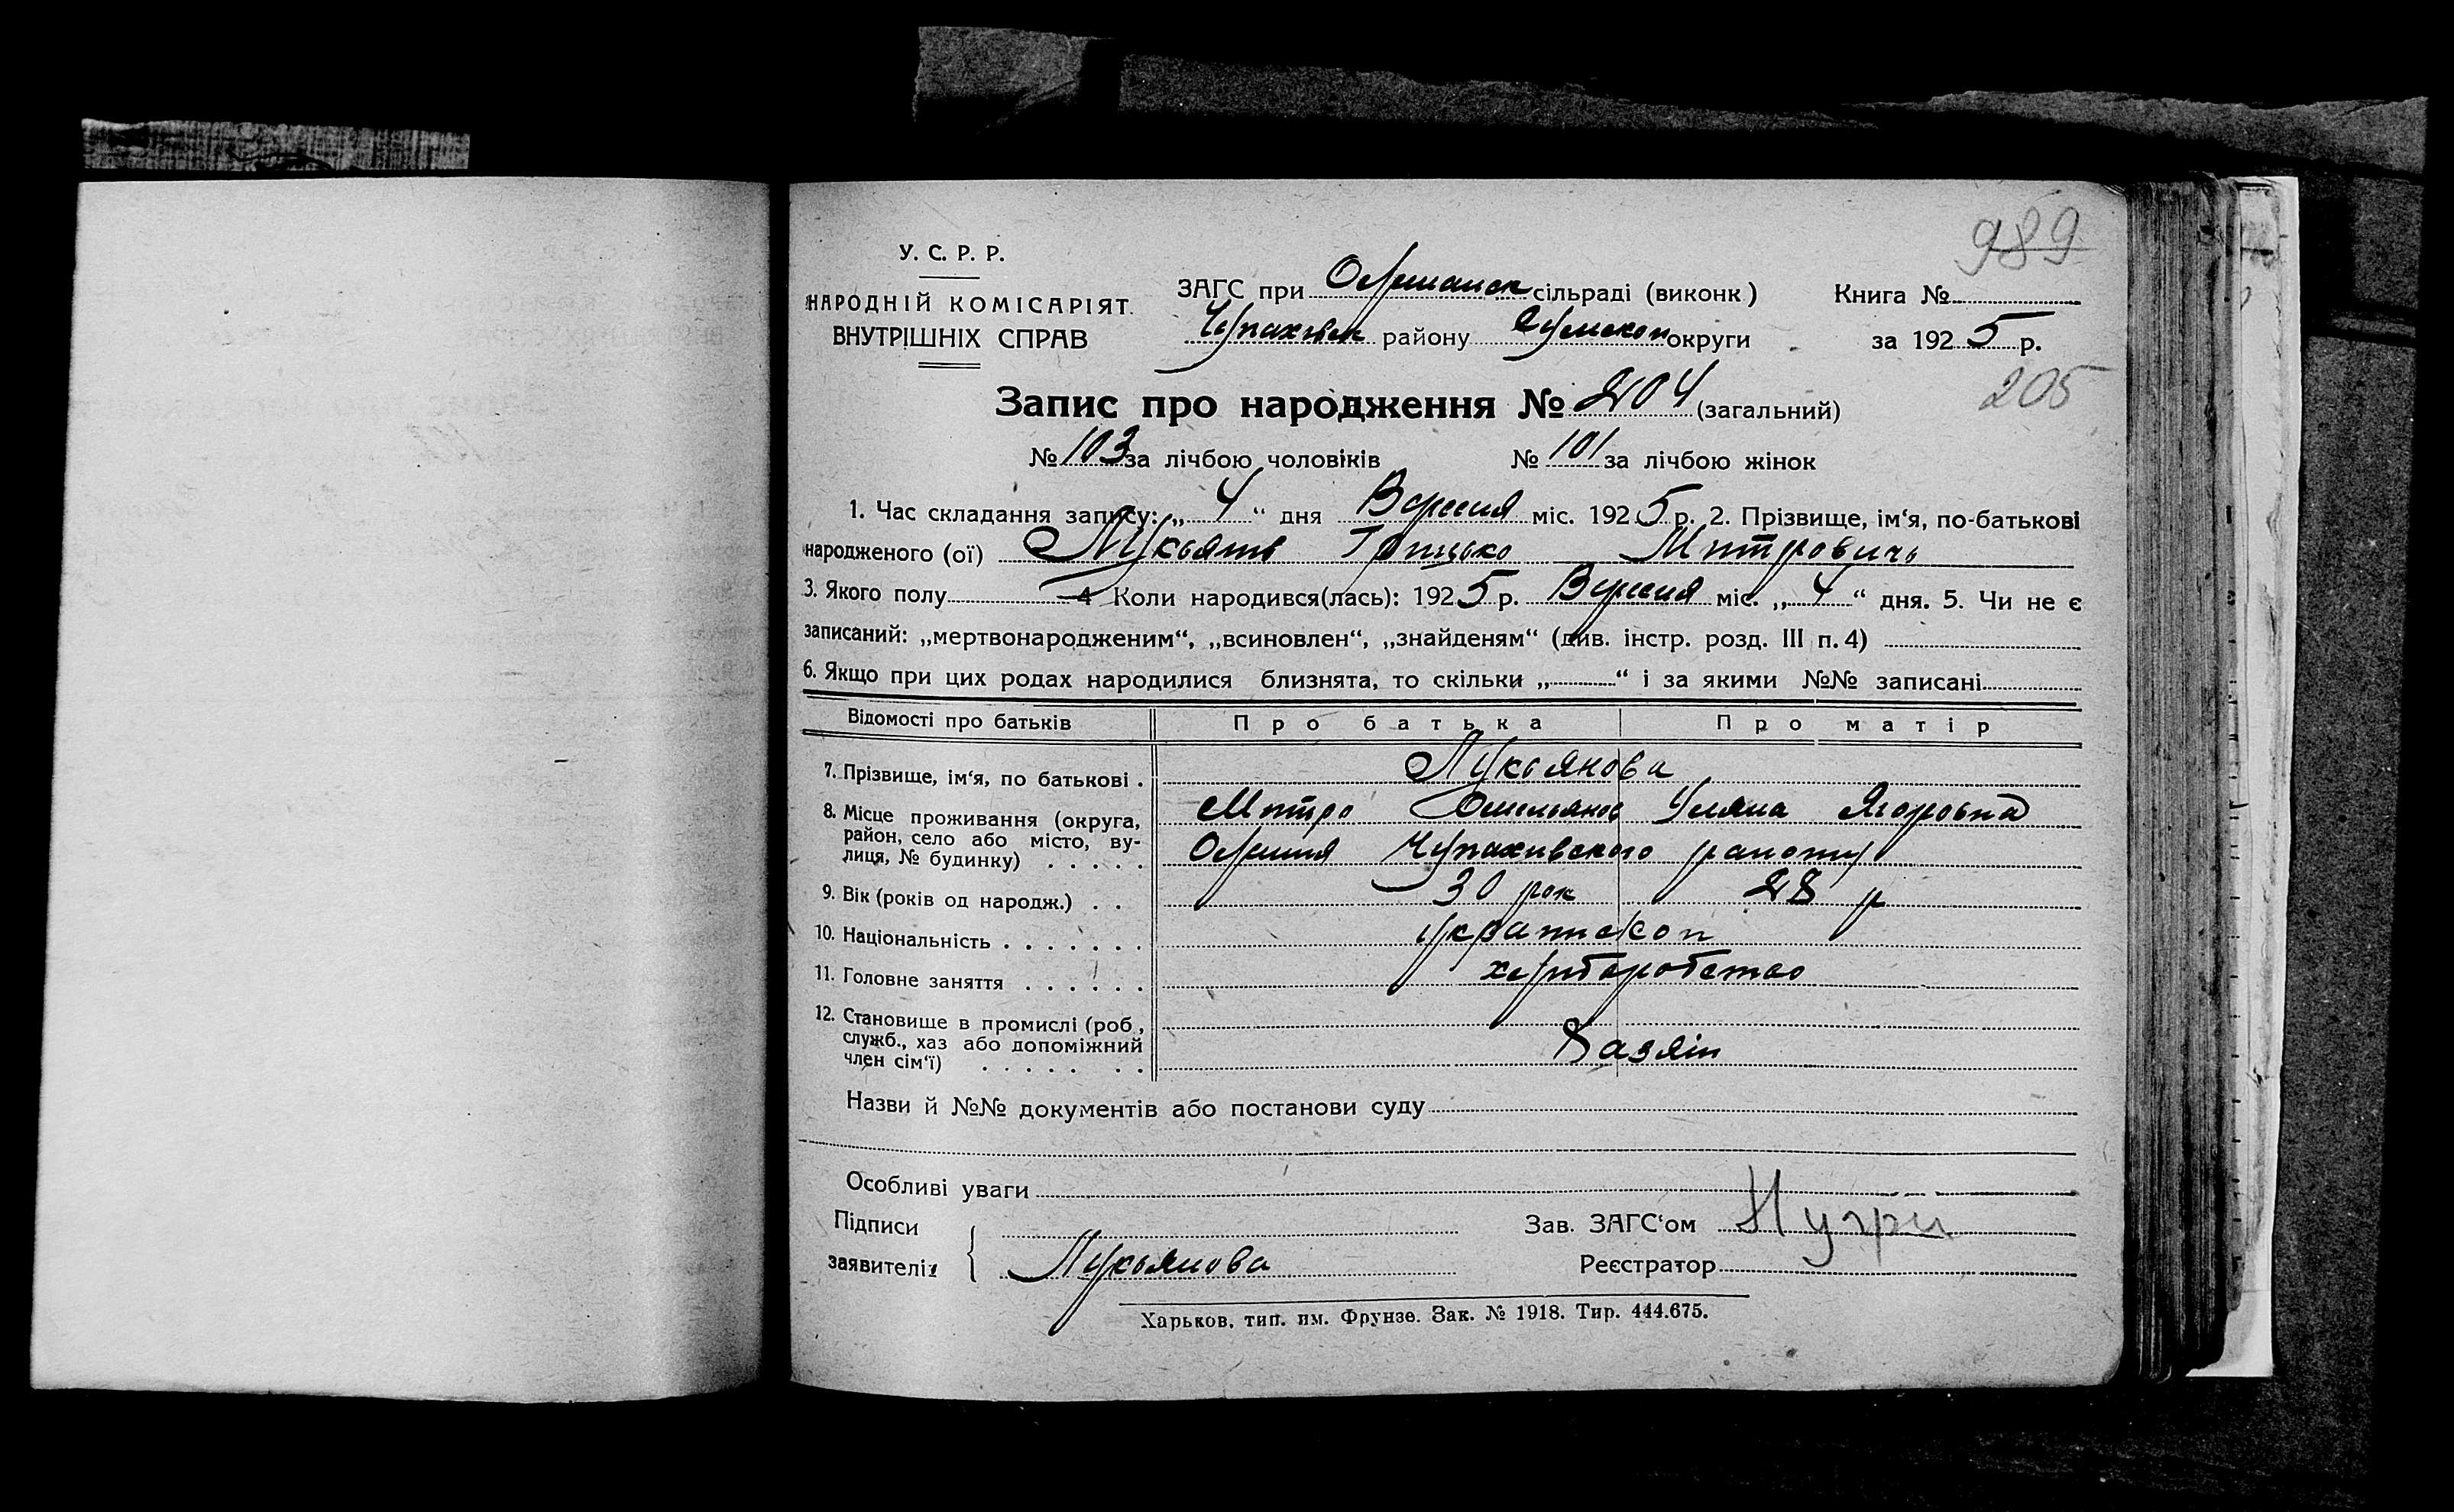 989
У. С. Р. Р.
НАРОДНІЙ КОМІСАРІЯТ.
ВНУТРІШНІХ СПРАВ
ЗАГС при сільраді (виконк)
району Сумскоп округи
Книга №
за 1925 р.
205
Запис про народження № 204 (загальний)
№ 103 за лічбою чоловіків № 101 за лічбою жінок
1. Час складання запису: „ 4 “ дня Вересня міс. 1925 р. 2. Прізвище, ім‘я, по-батькові
народженого (ої) Митровичь
3. Якого полу 4 Коли народився(лась): 1925 р. Вересня міс. „ 4 “ дня. 5. Чи не є
записаний: „мертвонародженим“, „всиновлен“, „знайденям“ (див. інстр. розд. III п. 4)
6. Якщо при цих родах народилися близнята, то скільки „ “ і за якими №№ записані
Відомості про батьків Про батька Про матір
7. Прізвище, ім‘я, по батькові . Лукьянова
8. Місце проживання (округа, Митро Уляна Ягоровна
район, село або місто, ву-
лиця, № будинку) . . . . .
9. Вік (років од народж.) . . 30 рок 28 р
10. Національність . . . . . . .
11. Головне заняття . . . . . .
12. Становище в промислі (роб.,
служб., хаз або допоміжний
член сім‘ї) . . . . . . .
Назви й №№ документів або постанови суду
Особливі уваги
Підписи
заявителів Лукьянова
Зав. ЗАГС‘ом
Реєстратор
Харьков, тип. им. Фрунзе. Зак. № 1918. Тир. 444.675.